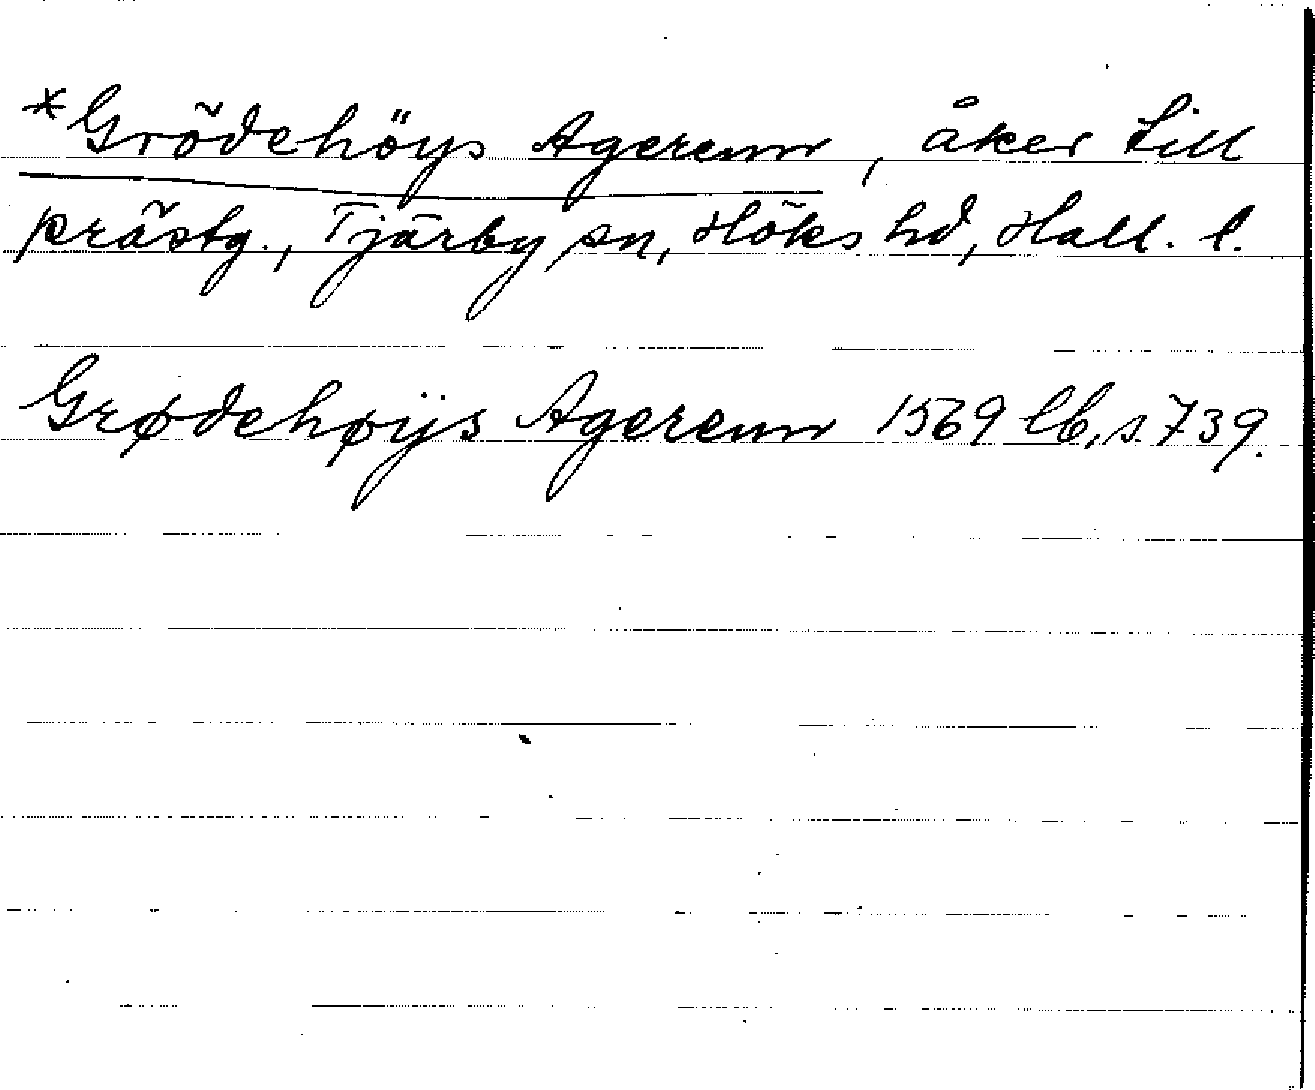 *Grödehöys Agerenn, åker till
prästg., Tjärby sn, Höks hd, Hall. l.
Grødehøÿs Agerenn 1569 lb, s. 739.